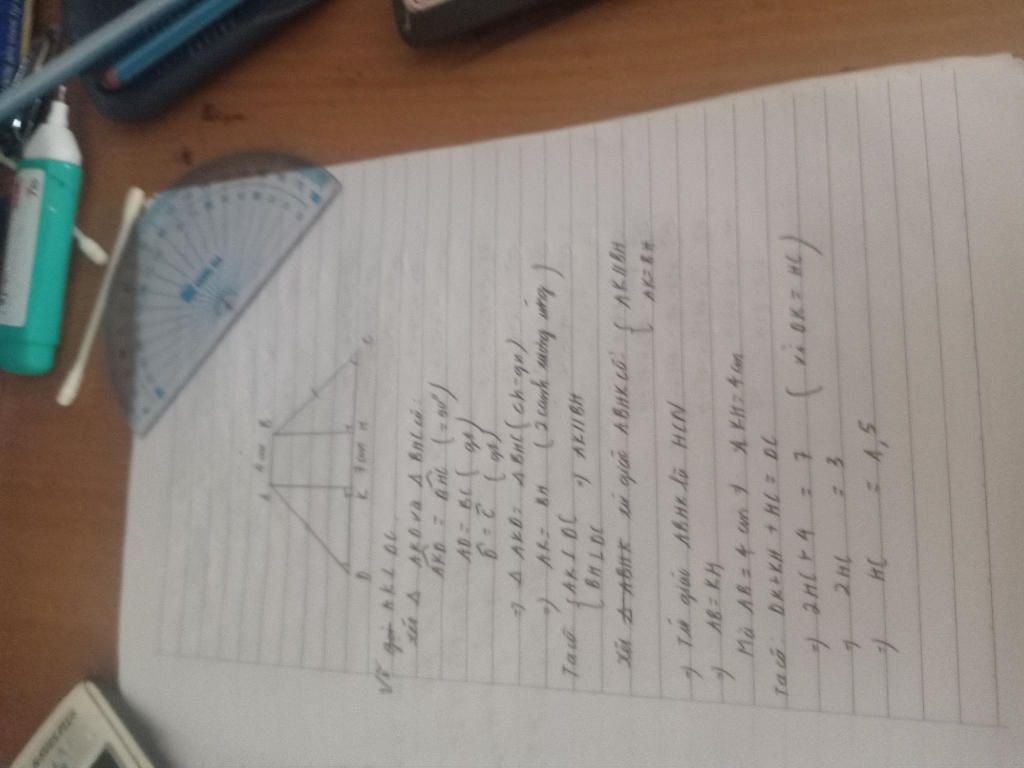 A 4 cm B
D K 7 cm H C
Vẽ AK ⊥ DC
Xét Δ AKD và Δ BHC có:
AKD = BHC (= 90°)
AD = BC (gt)
D = C (gt)
=> Δ AKD = Δ BHC (ch-gn)
=> AK = BH (2 cạnh tương ứng)
Ta có { AK ⊥ DC => AK // BH
BH ⊥ DC
Xét tứ giác ABHK có { AK // BH
AK = BH
=> Tứ giác ABHK là HCN
=> AB = KH
Mà AB = 4 cm => KH = 4 cm
Ta có: DK + KH + HC = DC
=> 2HC + 4 = 7 (vì DK = HC)
=> 2HC = 3
=> HC = 1,5